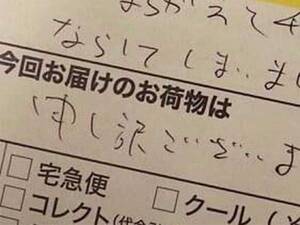 ならしてしまいまし
今回お届けのお荷物は
申し訳ございま
□ 宅急便
□ コレクト(代金引
□ クール(